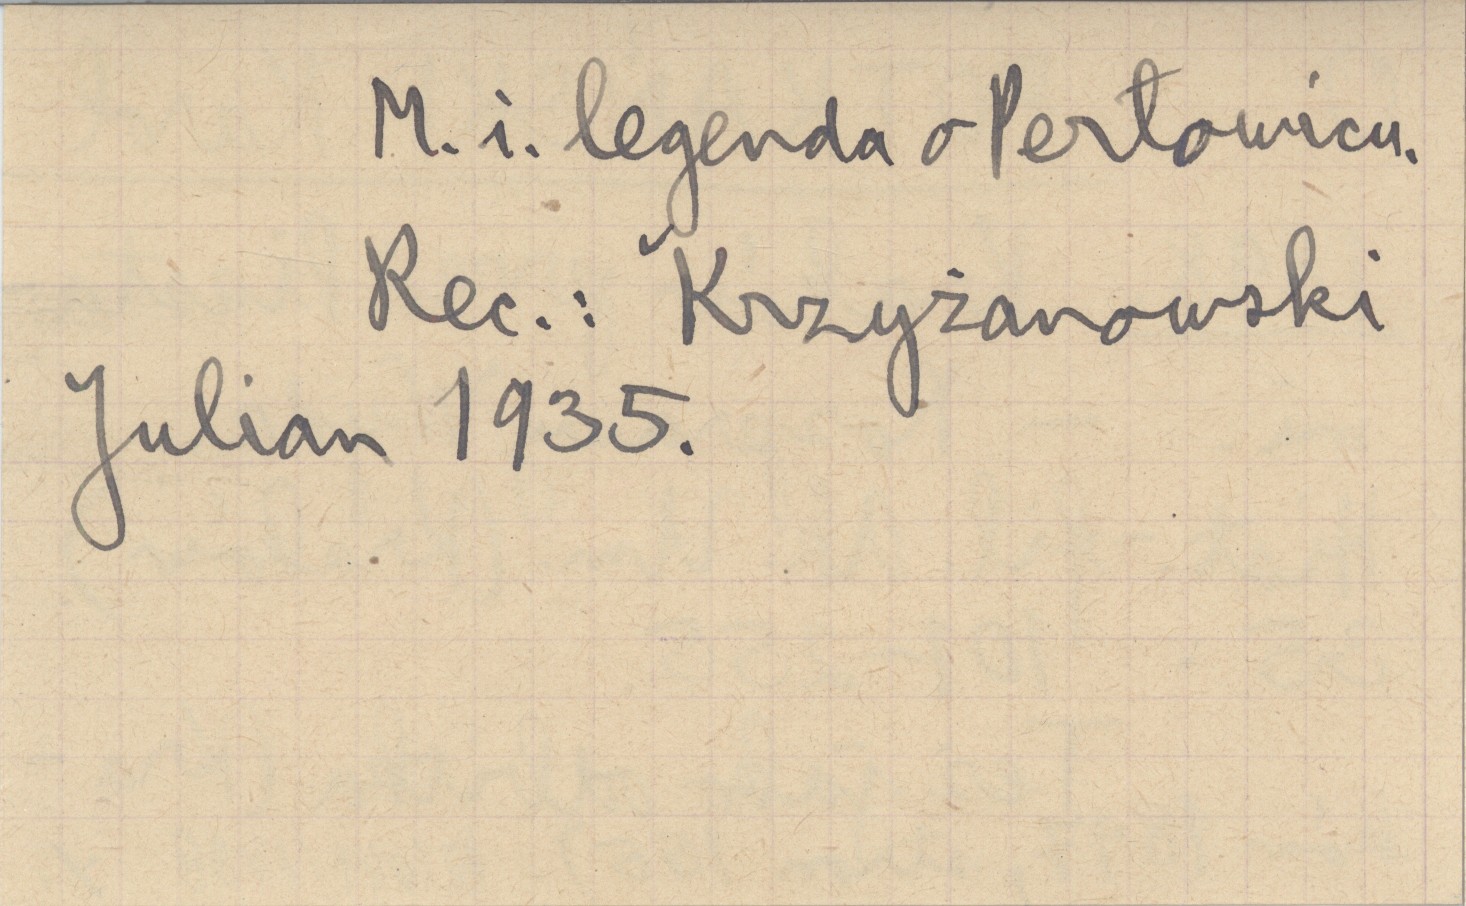 M. i. legenda o Perłowicu.
Rec.: Krzyżanowski
Julian 1935.